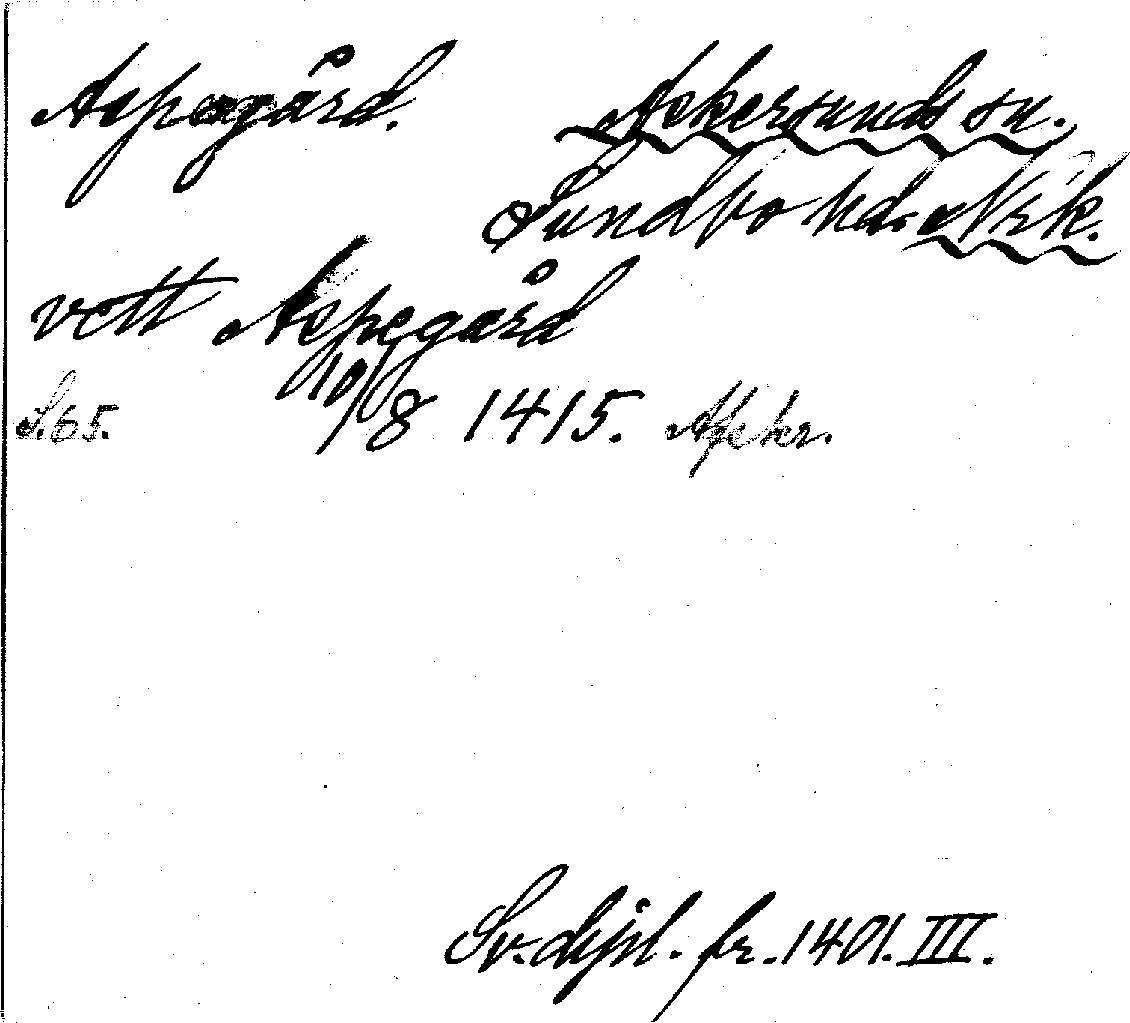 Aspegård. Askersunds sn.
Sundbo hd. Nrk.
vtt Aspegård
S. 65. 10/8 1415. Afskr.
Sv. dipl. fr. 1401. III.